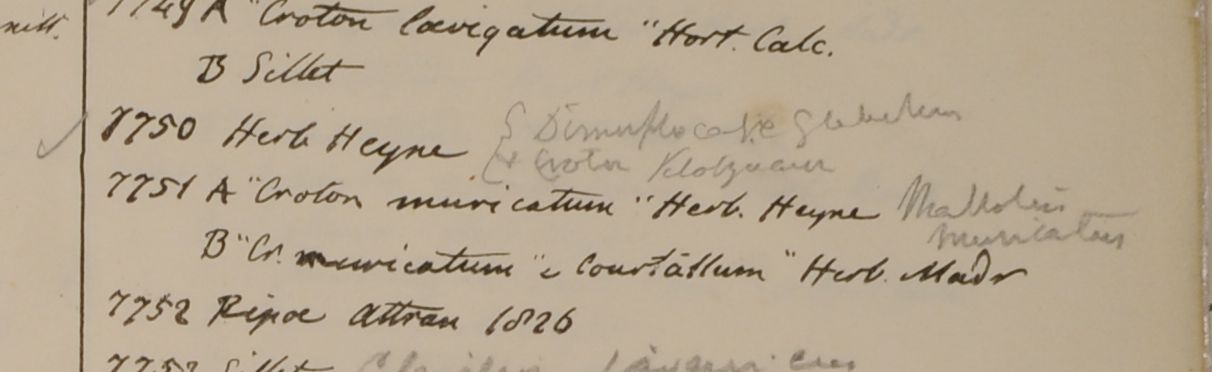 7749 A "Croton lævigatum" Hort. Calc.
B Sillet
7750 Herb Heyne
& Croton Klotz
7751 A "Croton muricatum" Herb. Heyne Mallotus
muricatus
B "Cr. muricatum e Courtallum" Herb. Madr
7752 Ripae Attran 1826
7753 Sillet